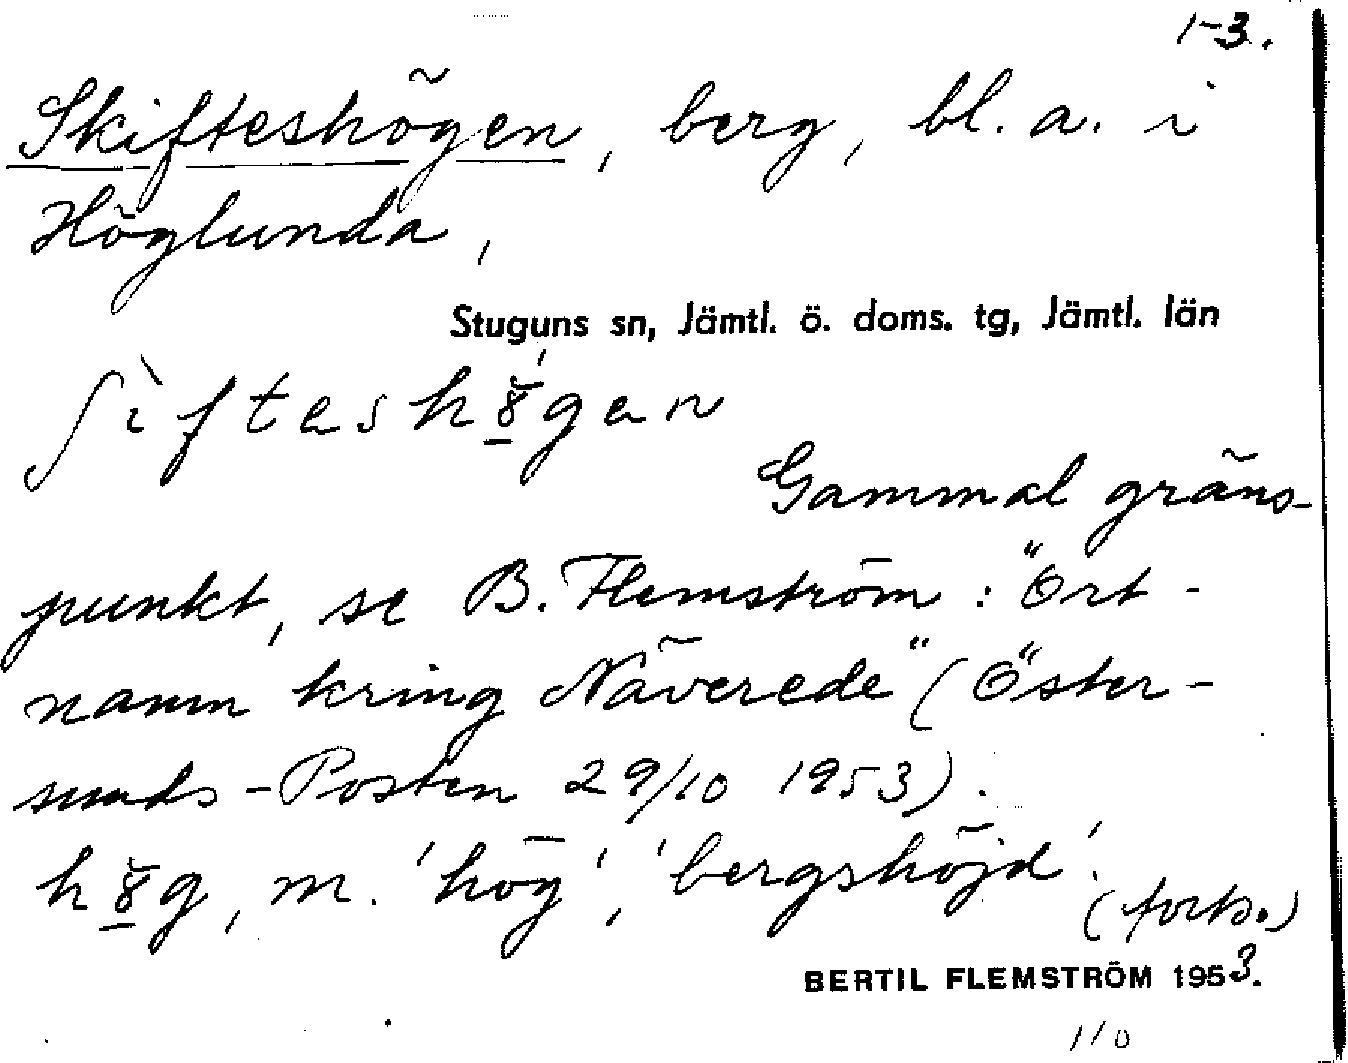 1-3.
Skifteshögen, berg, bl. a. i
Höglunda,
Stuguns sn, Jämtl. ö. doms. tg, Jämtl. län
ʃìfteshɣ̄́gen
Gammal gräns-
punkt, se B. Flemström: "Ort-
namn kring Näverede" (Öster-
sunds-Posten 29/10 1953).
h8̲g, m. 'hög', 'bergshöjd'.
(forts.)
BERTIL FLEMSTRÖM 1953.
110